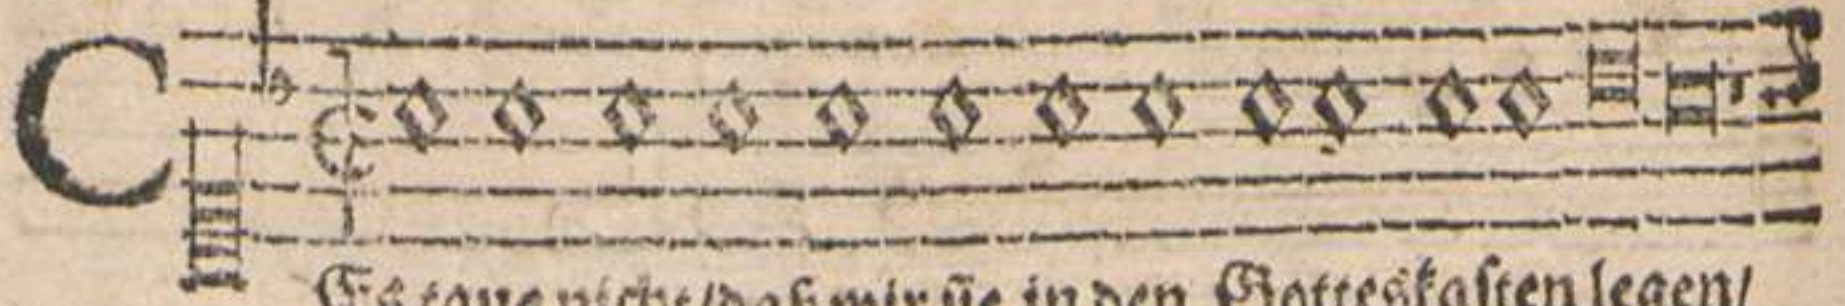 C
Es taug nicht / daß wir sie in den Gotteskasten legen /